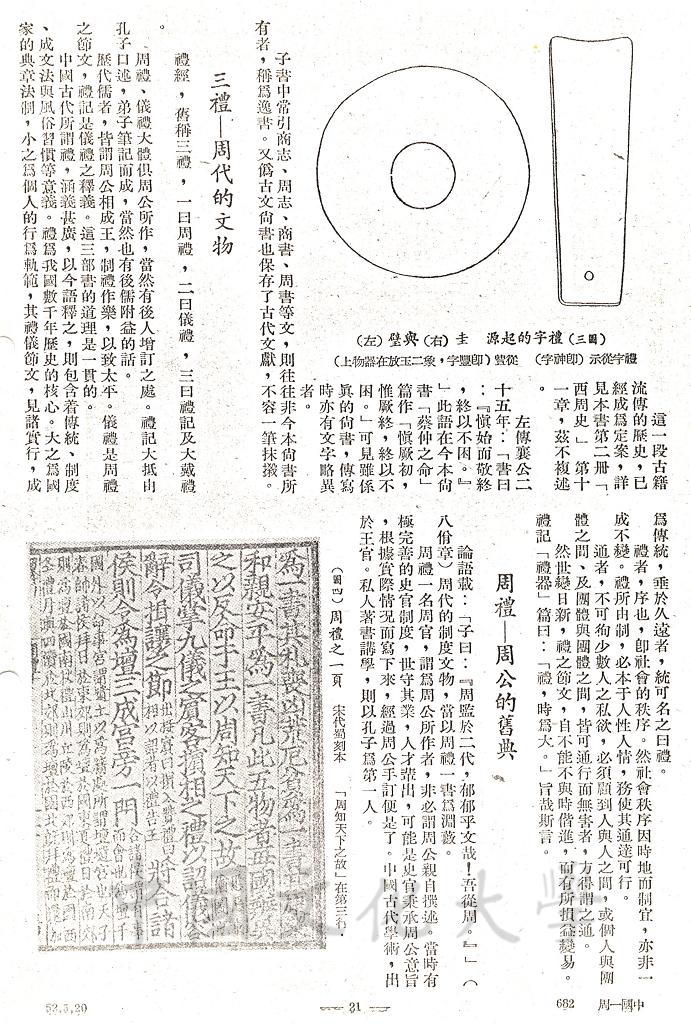 子書中常引商志、周志、商書、周書等文,則往往非今本尚書所
有者,稱爲逸書。又僞古文尚書也保存了古代文獻,不容一筆抹摋。
三禮—周代的文物
禮經,舊稱三禮,一曰周禮,二曰儀禮,三曰禮記及大戴禮
。
周禮、儀禮大體俱周公所作,當然有後人增訂之處。禮記大抵由
孔子口述,弟子筆記而成,當然也有後儒附益的話。
歷代儒者,皆謂周公相成王,制禮作樂,以致太平。儀禮是周禮
之節文,禮記是儀禮之釋義。這三部書的道理是一貫的。
中國古代所謂禮,涵義甚廣,以今語釋之,則包含着傳統、制度
、成文法與風俗習慣等意義。禮爲我國數千年歷史的核心。大之爲國
家的典章法制,小之爲個人的行爲軌範,其禮儀節文,見諸實行,成
(圖三)禮字的起源 圭(右)與璧(左)
禮字從示(即神字) 從豐(即豐字,象二玉放在器物上)
這一段古籍
流傳的歷史,已
經成爲定案,詳
見本書第二冊「
西周史」第十
一章,茲不複述
。
左傳襄公二
十五年:「書曰
:『愼始而敬終
,終以不困。』
」此語在今本尚
書「蔡仲之命」
篇作「愼厥初,
惟厥終,終以不
困。」可見雖係
眞的尚書,傳寫
時亦有文字略異
者。
爲傳統,垂於久遠者,統可名之曰禮。
禮者,序也,卽社會的秩序。然社會秩序因時地而制宜,亦非一
成不變。禮所由制,必本于人性人情,務使其通達可行。
通者,不可徇少數人之私欲,必須顧到人與人之間,或個人與團
體之間、及團體與團體之間,皆可通行而無害者,方得謂之通。
然世變日新,禮之節文,自不能不與時偕進,而有所損益變易。
禮記「禮器」篇曰:「禮,時爲大。」旨哉斯言。
周禮—周公的舊典
論語載:「子曰:『周監於二代,郁郁乎文哉!吾從周。』」(
八佾章)周代的制度文物,當以周禮一書爲淵藪。
周禮一名周官,謂爲周公所作者,非必謂周公親自撰述。當時有
極完善的史官制度,世守其業,人才輩出,可能是史官秉承周公意旨
,根據實際情況而寫下來,經過周公手訂便是了。中國古代學術,出
於王官。私人著書講學,則以孔子爲第一人。
(圖四)周禮之一頁 宋代蜀刻本 「周知天下之故」在第三行.
爲一書其札喪凶荒厄貧爲一書其康樂
和親安平爲一書凡此五物者每國辨異
之以反命于王以周知天下之故
司儀掌九儀之賓客擯相之禮以詔儀容
辭令揖讓之節
將合諸
侯則令爲壇三成宮旁一門
中國文化大學
52.5.20
21
中國一周 682